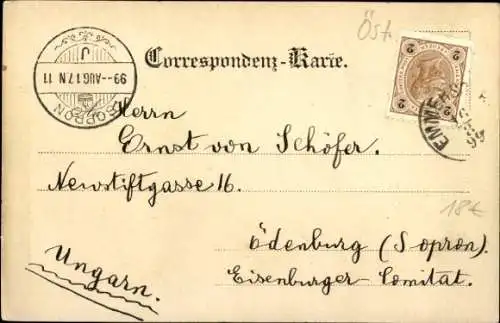 Öst.
Correspondenz-Karte.
SOPRON
99--AUG 17. N 11
J
2 2
2 2
EMMER
99
Herrn
Ernst von Schöfer.
Newstiftgasse 16.
18€
Ödenburg (Sopron).
Eisenburger-Comitat.
Ungarn.